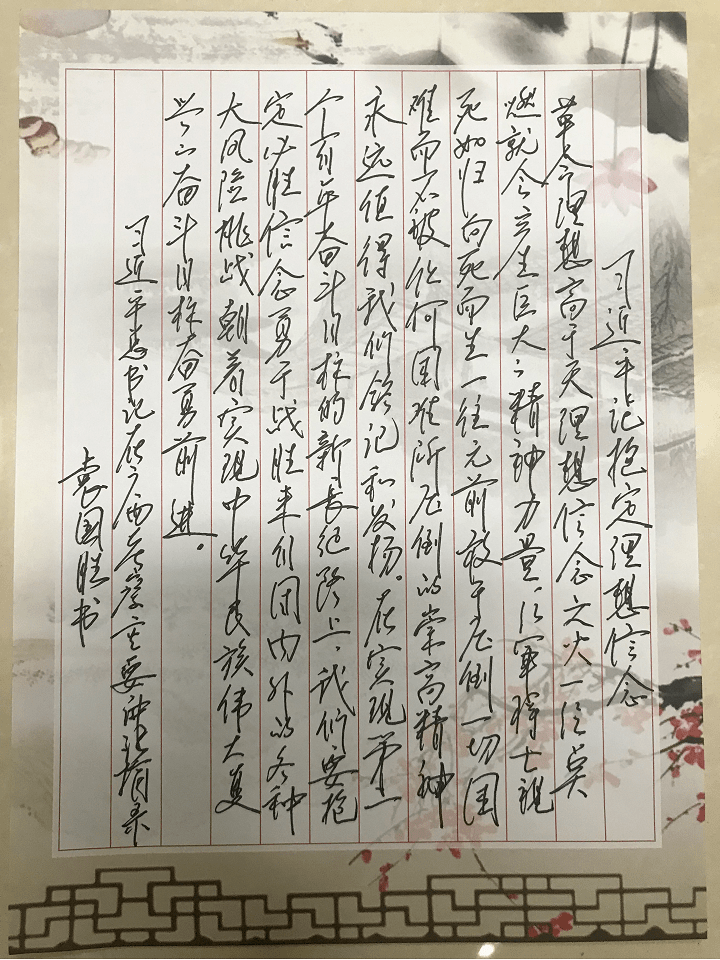 习近平论抱定理想信念
革命理想高于天理想信念之火一经点
燃就会产生巨大之精神力量,红军将士视
死如归向死而生一往无前敢于压倒一切困
难而不被任何困难所压倒的崇高精神
永远值得我们铭记和发扬。在实现第二
个百年奋斗目标的新长征路上,我们要抱
定必胜信念勇于战胜来自国内外的各种
大风险挑战朝着实现中华民族伟大复
兴之奋斗目标奋勇前进。
习近平总书记在广西考察重要讲话节录
袁国胜书